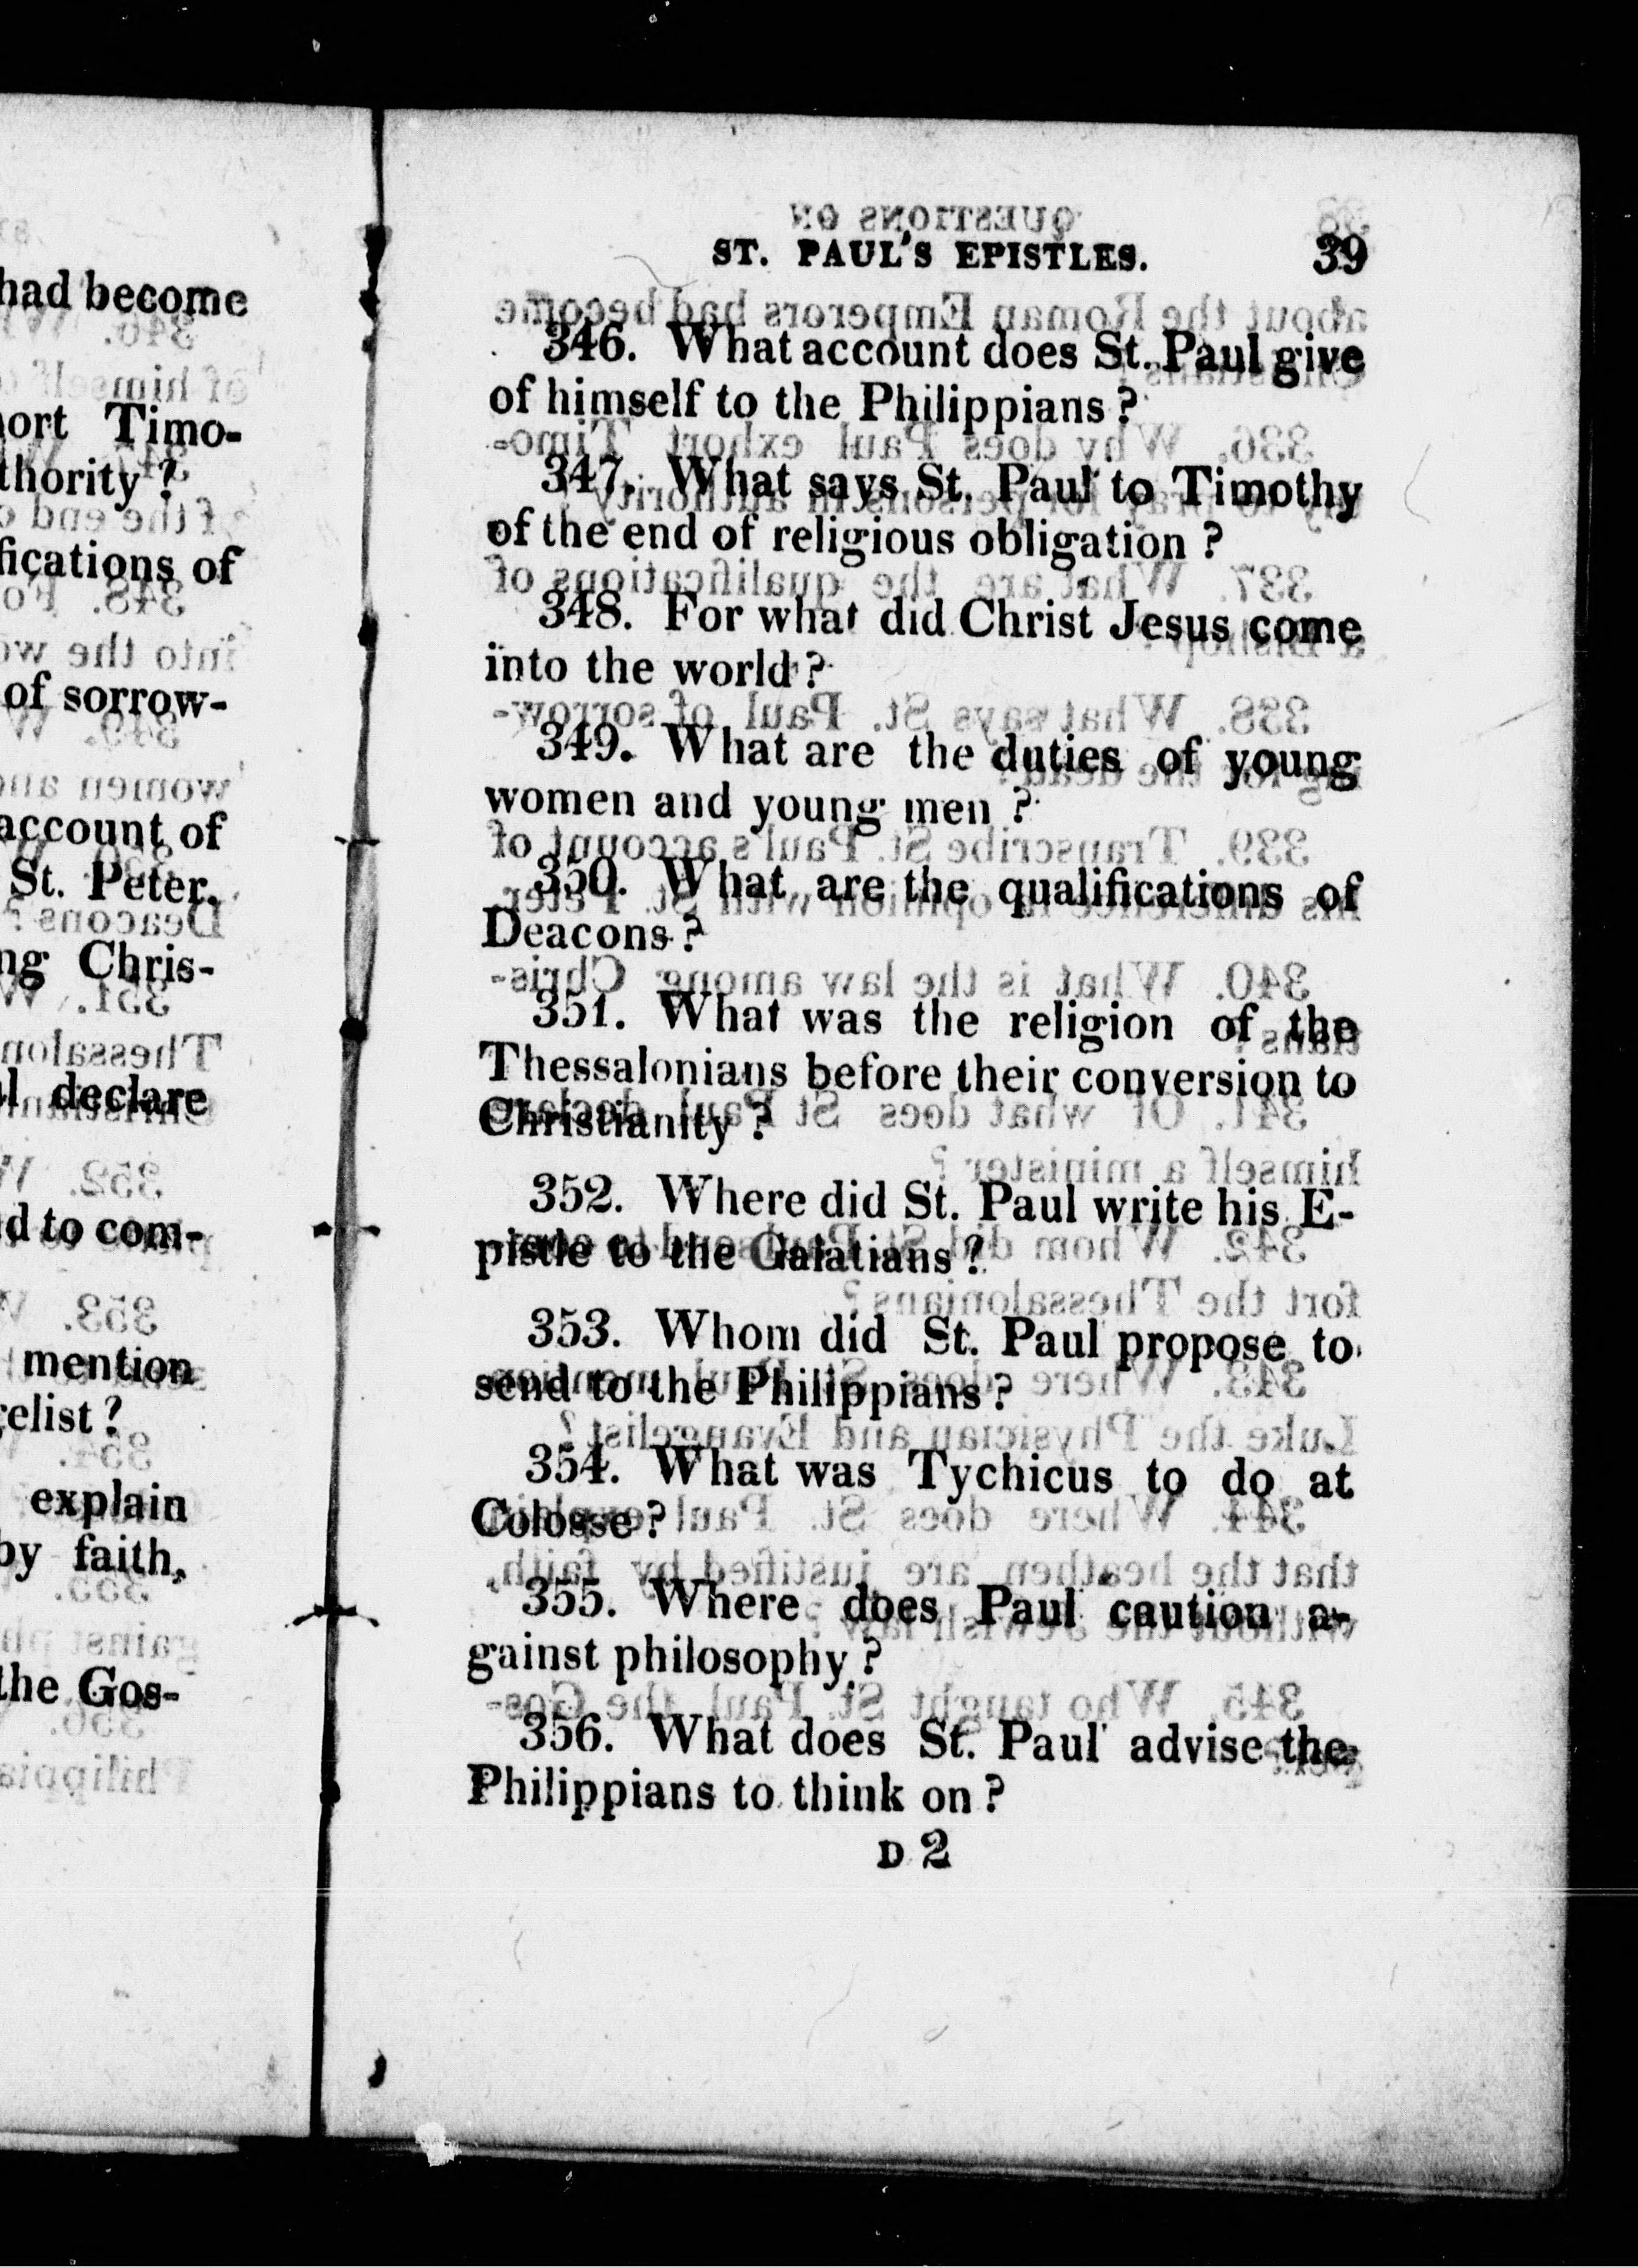 had become
ort Timo-
thority?
fications of
of sorrow-
account of
St. Peter.
ng Chris-
l declare
d to com-
mention
elist?
explain
by faith,
the Gos-
ST. PAUL'S EPISTLES. 39
346. What account does St. Paul give
of himself to the Philippians?
347. What says St. Paul to Timothy
of the end of religious obligation?
348. For what did Christ Jesus come
into the world?
349. What are the duties of young
women and young men?
350. What are the qualifications of
Deacons?
351. What was the religion of the
Thessalonians before their conversion to
Christianity?
352. Where did St. Paul write his E-
pistle to the Galatians?
353. Whom did St. Paul propose to
send to the Philippians?
354. What was Tychicus to do at
Colosse?
355. Where does Paul caution a-
gainst philosophy?
356. What does St. Paul advise the
Philippians to think on?
D 2